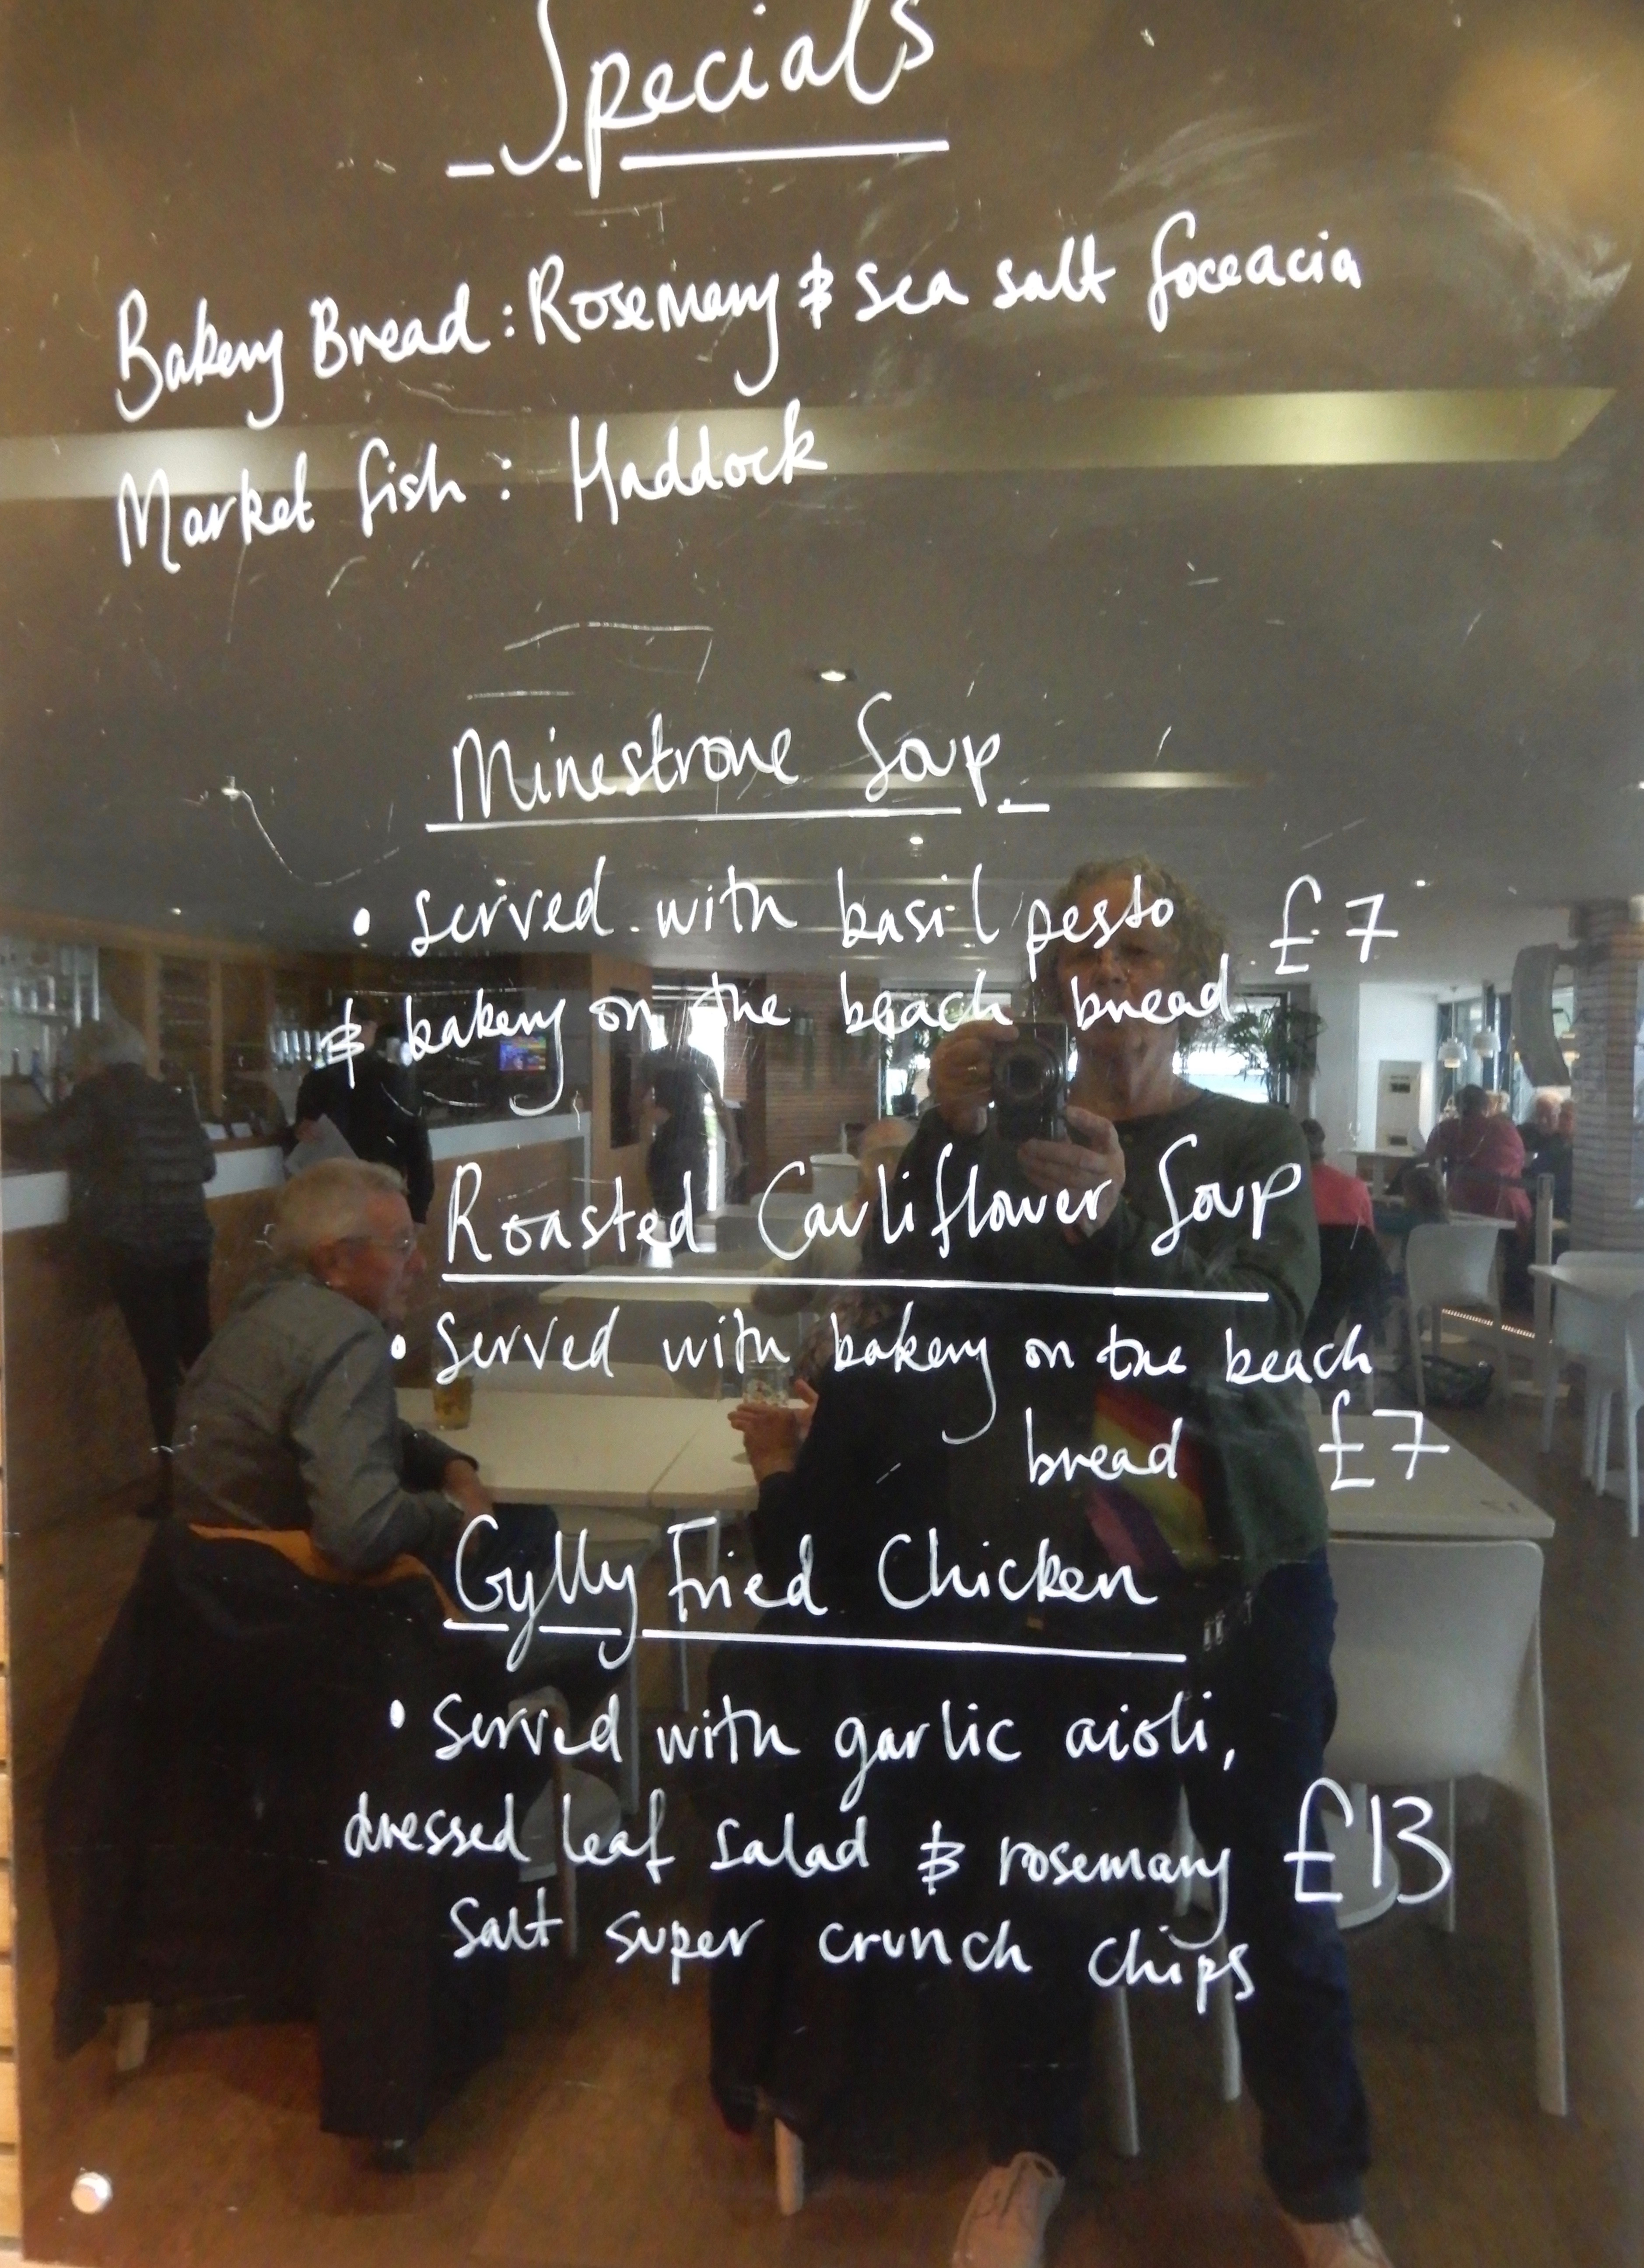 Specials
Bakery Bread : Rosemary & sea salt foceacia
Market fish : Haddock
Minestrone Soup
• served with basil pesto £7
& bakery on the beach bread
Roasted Cauliflower Soup
• served with bakery on the beach
bread £7
Gylly Fried Chicken
• served with garlic aioli,
dressed leaf salad & rosemary £13
salt super crunch chips